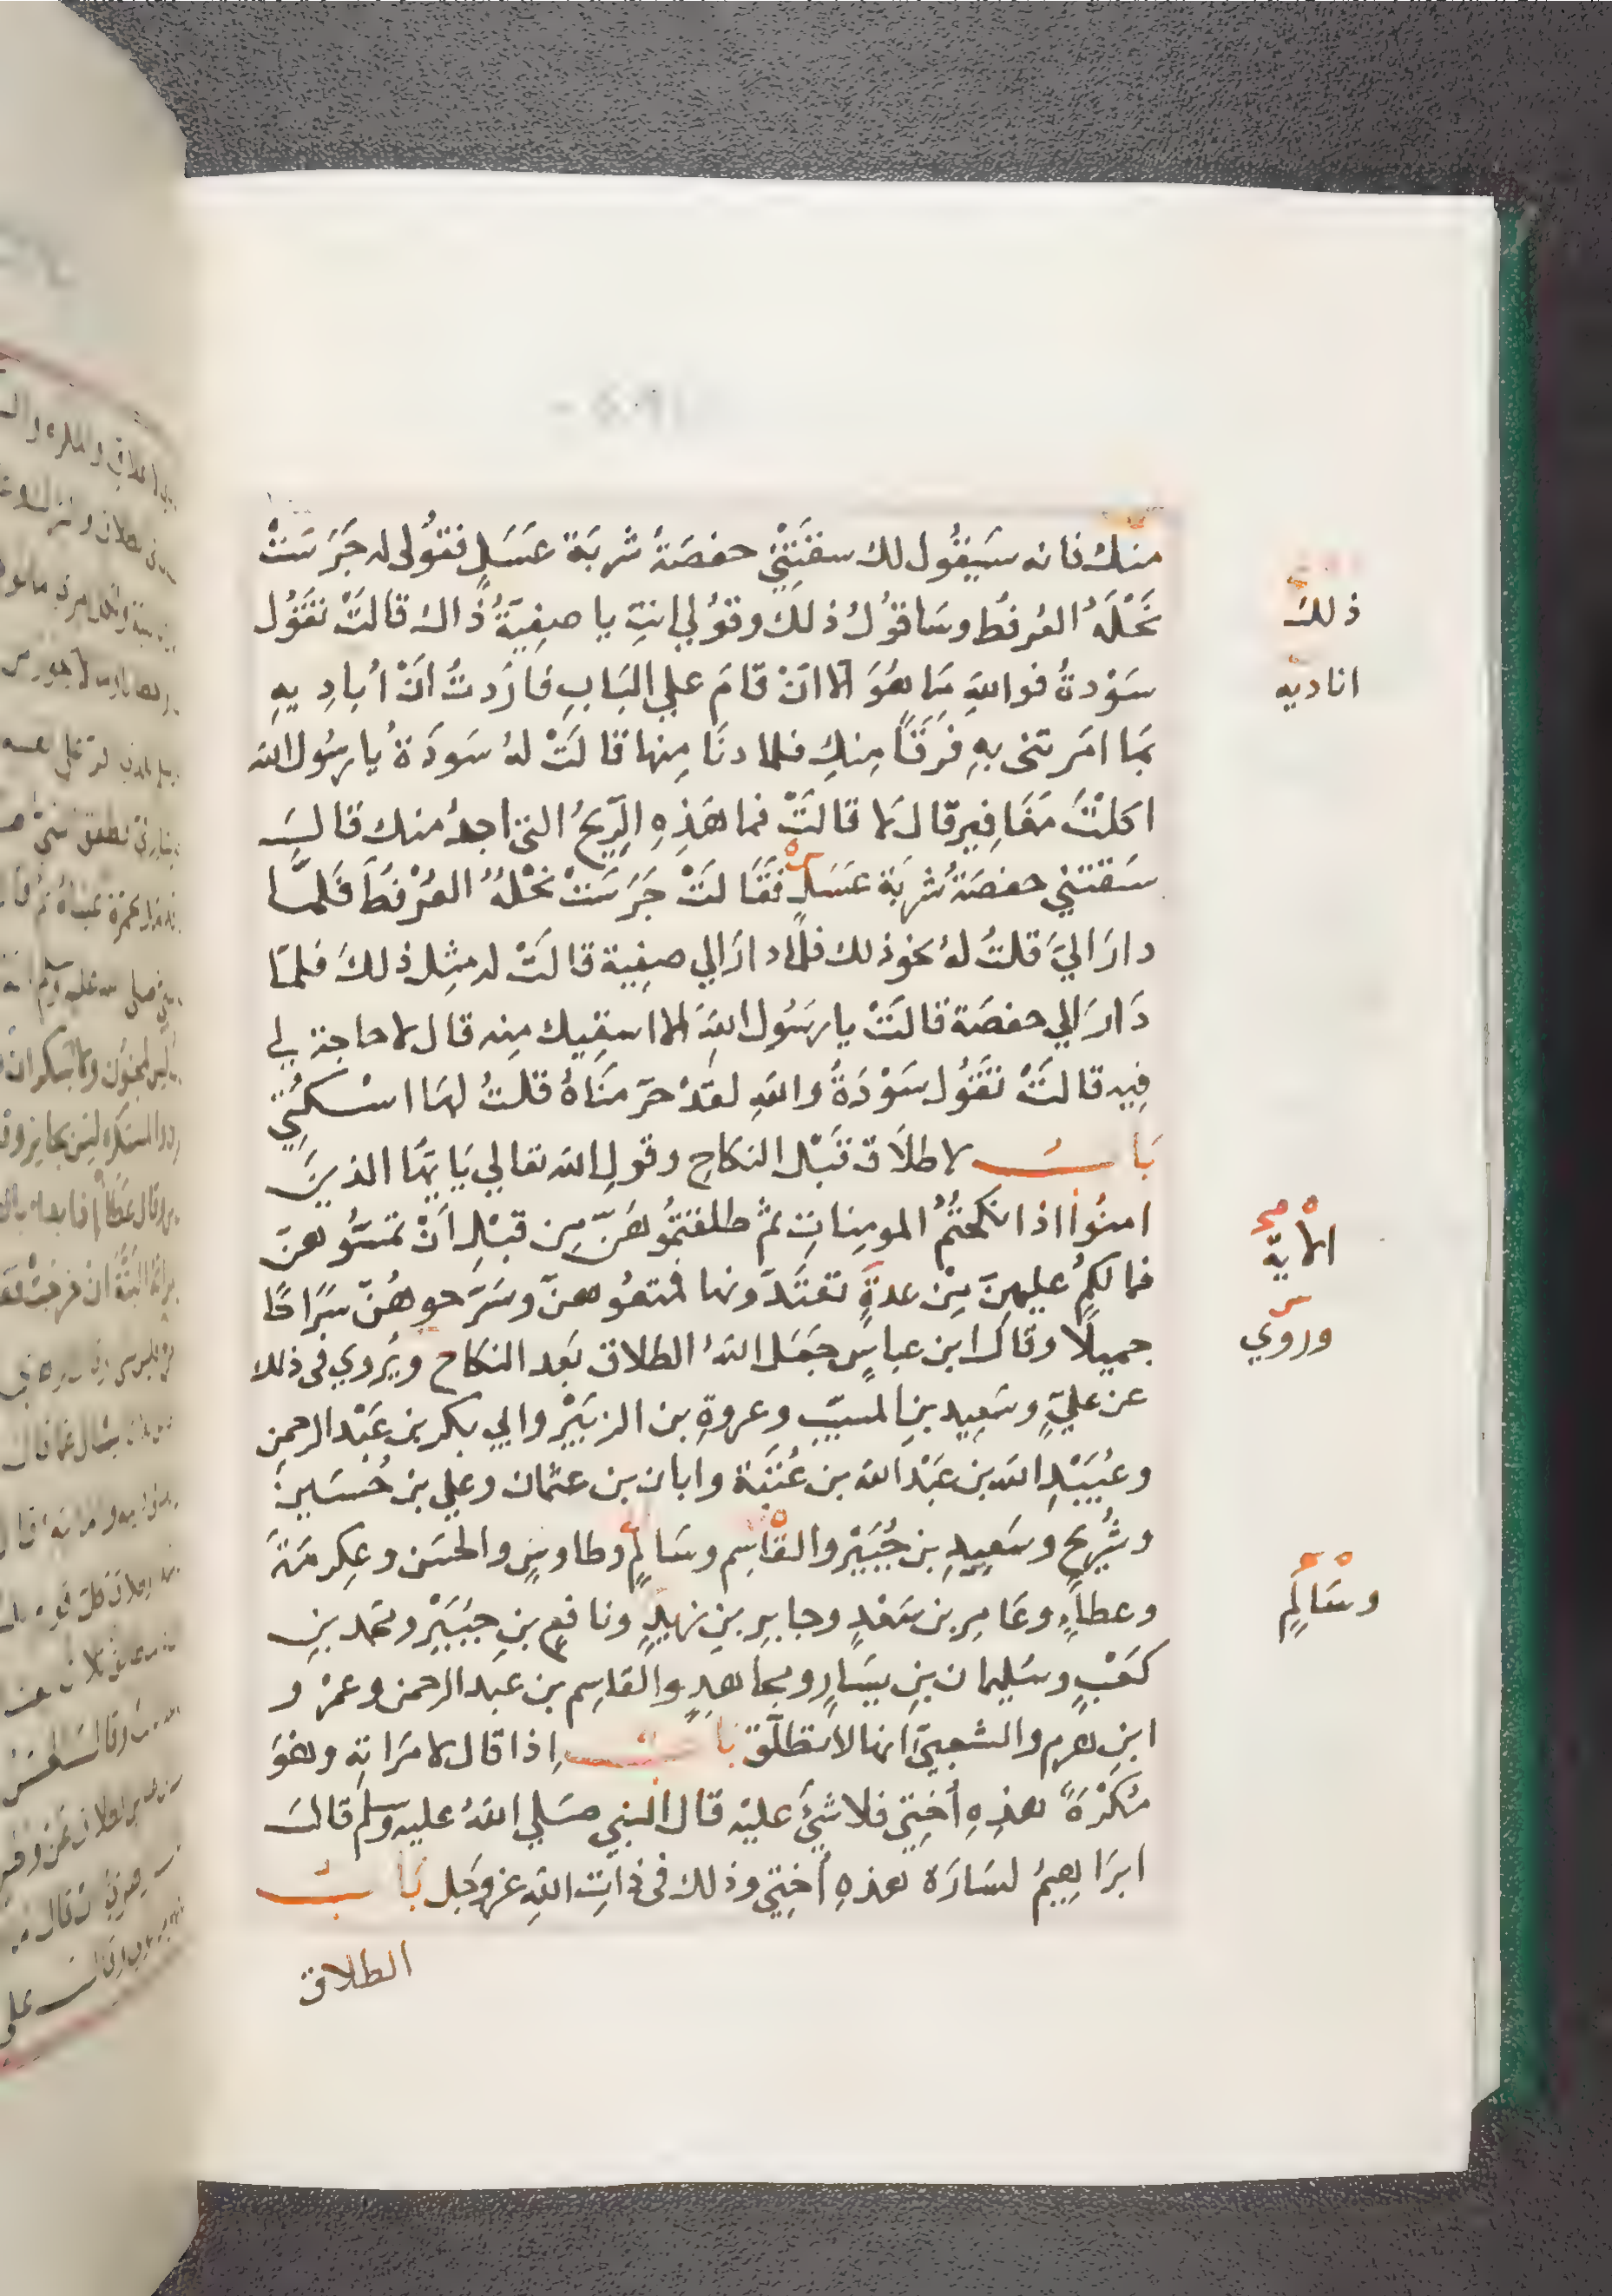 منك فانه سَيَقُول لك سقَتْنِي حفصَةُ شربَة عَسَلٍ فقُولى له جَرَسَتْ
نَحْلَهُ العُرفطُ وسَاقولُ ذلكَ وقولي انتِ يا صفِيَّةُ ذاك قالَتْ تَقُول
سَوْدةُ فوالله مَا هُوَ الا انْ قامَ علي البَابِ فارَدتُ انْ اُبادِيهِ
بمَا امَرتنى بهِ فَرَقًا مِنكِ فلما دنَا مِنها قالَتْ لهُ سَودَةُ يا رسُول الله
اكلْتَ مَغَافِير قال لا قالَتْ فما هَذِهِ الرِّيحُ التى اجدُ منك قالَ
سَقتنِي حفصَةُ شربَة عَسَلٍ فقَالَتْ جَرَسَتْ نحْلُهُ العُرْفطَ فَلمَّا
دارَ اليَّ قلتُ لهُ نحو ذلك فلما دارَ الي صفِية قالَتْ له مِثل ذلكَ فلمّا
دَارَ الي حفصَة قالَتْ يا رسُول اللهِ الا اسقِيك مِنه قال لا حاجة لي
فِيه قالَتْ تقُول سَوْدَةُ واللهِ لقدْ حرّمنَاهُ قلتُ لهَا اسْكُتِي
بَابُ لا طلَاق قبْل النكاحِ وقولِ الله تعالي يَايهَا الذينَ
امنُوا اذا نكحتُمُ المومِنات ثم طلقتمُوهُنّ مِن قبْلِ انْ تمسُّوهنّ
فما لكم عليهِنّ مِنْ عدةٍ تعتَدّونها فمتعُوهنّ وسَرّحوهُنّ سَرَاحًا
جميلًا وقالَ ابن عباسٍ جعَل اللهُ الطلاق بَعد النكاح ويُروي فى ذلك
عن عليّ وسَعِيد بنِ المسيّبِ وعروةِ بن الزبَيْرِ وابي بكر بن عَبْد الرحمنِ
وعُبَيْدِ الله بن عَبْد الله بن عُتبَة وابان بن عثمان وعلي بن حُسَينٍ
وشُريحٍ وسَعِيدِ بن جُبَيْر والقاسِم وسَالمٍ وطاوسٍ والحسَن وعِكرمَةَ
وعطاءٍ وعَامِر بن سَعْدٍ وجابِرِ بنِ زيدٍ ونافعِ بنِ جبُيَيْرٍ ومحمد بنِ
كعْبٍ وسَليمان بنِ يسَارٍ ومجاهدٍ والقاسِم بن عبد الرحمن وعمْرِو
ابنِ هرمٍ والشعبِيّ انها لا تطلّق بابُ اِذا قال لامرَاتِه وهُوَ
مُكْرَهٌ هذِهِ اُختِي فلا شيْءَ عليْه قال النبي صَلي اللهُ عليه وسلم قالَ
ابرَاهِيمُ لسَارَة هذهِ اُختِي وذلك فى ذاتِ اللهِ عز وجَل بَابُ
الطلاق
ذلكَ
اناديه
الاية
وروي
وسَالِمٍ